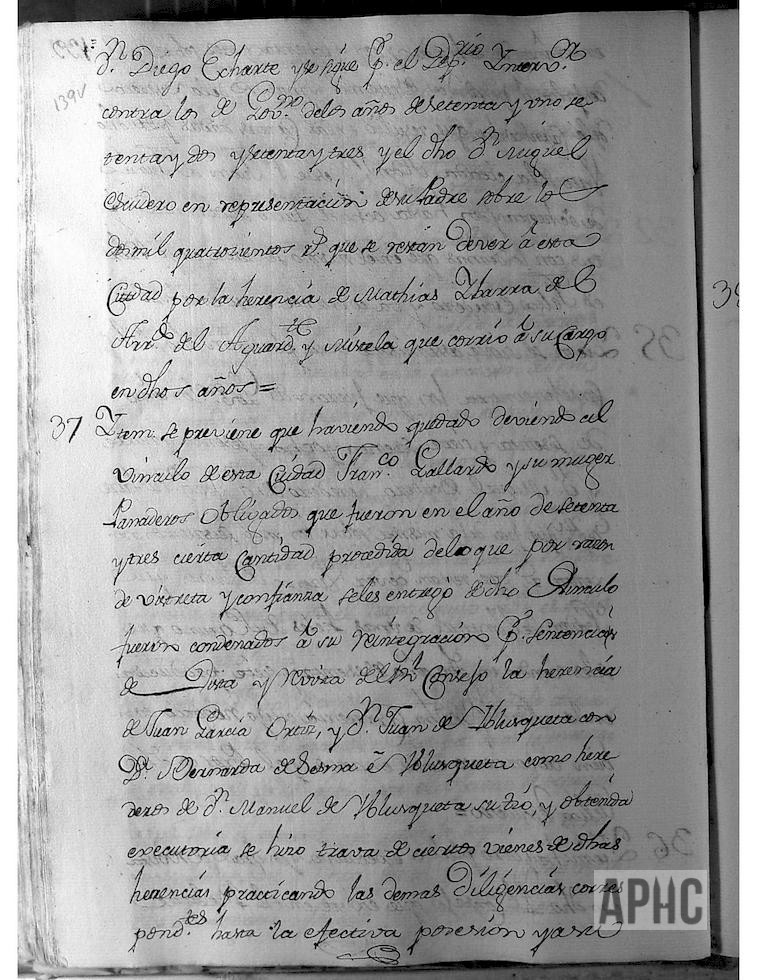 Dn. Diego Echarte y se sigue Pr. el Dep.rio Ynterv.r
139v
contra los de Gov.no delos años de setenta y uno se
tenta y dos y setenta y tres y el dho Dn. Miguel
Escudero en representación de su Padre sobre los
dos mil quatrozientos r.s que se restan dever â esta
Ciudad por la herencia de Mathias Ybarra del
Arr.do del Aguard.te y Mistela que corrió â su Cargo
en dhos años =
37 Ytem: se previene que haviendo quedado deviendo al
Vinculo de esta Ciudad Fran.co Gallardo y su muger
Panaderos Obligados que fueron en el año de setenta
y tres cierta Cantidad procedida delo que por razon
de vistreta y confianza seles entregó de dho Vinculo
fueron condenados â su reintegración Pr. Sentencias
de Vista y Revista del R.l Consejo la herencia
de Juan Garcia Ortiz, y Dn. Juan de Ublusqueta con
Dª. Bernarda de Lesma ê Ublusqueta como here
deros de Dn. Manuel de Ublusqueta su tio, y obtenida
executoria se hizo trava de ciertos vienes de dhas
herencias practicando las demas Diligencias corres
pond.tes hasta la efectiva posesion y asi
38
APHC